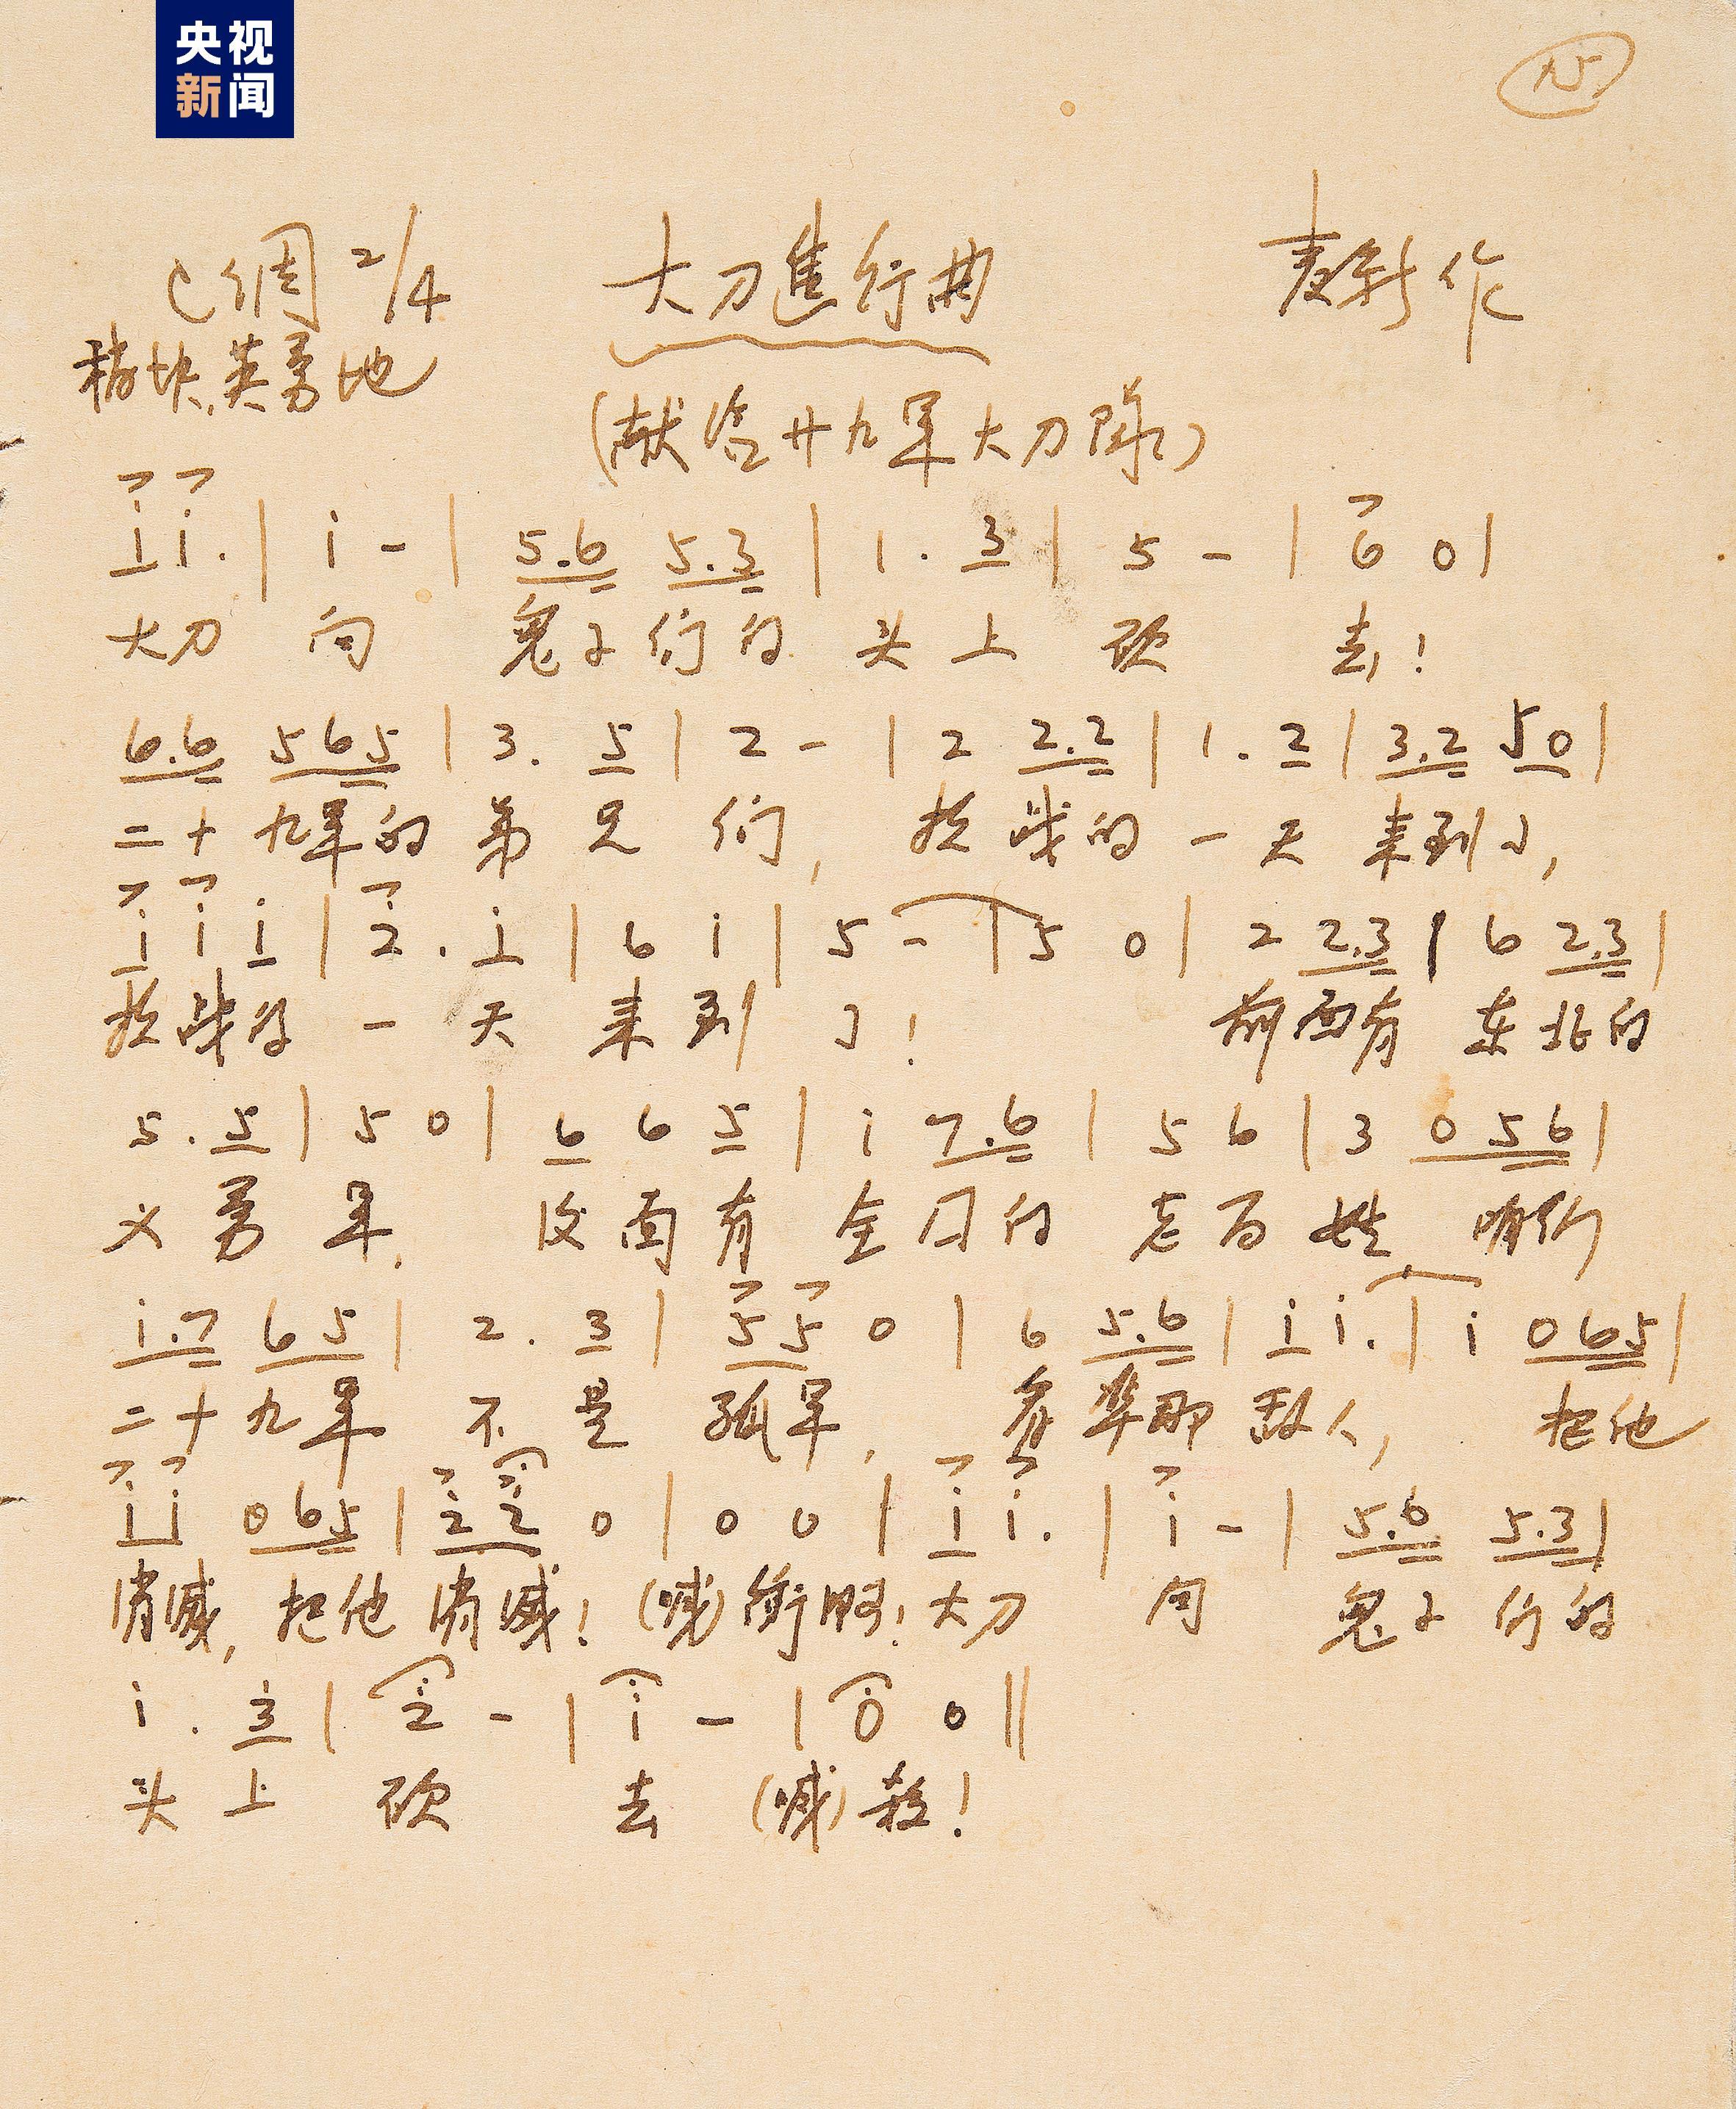 央视
新闻
C调 2/4 大刀进行曲 麦新作
稍快、英勇地
(献给廿九军大刀队)
i i. | i - | 5.6 5.3 | 1. 3 | 5 - | 6 0 |
大刀 向 鬼子们的 头上 砍 去!
6.6 565 | 3. 5 | 2 - | 2 2.2 | 1. 2 | 3.2 50 |
二十九军的弟兄们, 抗战的一天来到了,
i i i | 2. i | 6 i | 5 - | 5 0 | 2 2.3 | 6 2.3 |
抗战的一天来到了! 前面有东北的
5. 5 | 5 0 | 6 6 5 | i 7.6 | 5 6 | 3 0 56 |
义勇军, 后面有全国的老百姓 咱们
i.7 65 | 2. 3 | 55 0 | 6 5.6 | i i. | i 065 |
二十九军不是孤军, 看准那敌人, 把他
i i 065 | 2 2 0 | 0 0 | i i. | i - | 5.6 5.3 |
消灭, 把他消灭! (喊)冲啊! 大刀 向 鬼子们的
i. 3 | 2 - | i - | 0 0 ||
头上 砍 去 (喊)杀!